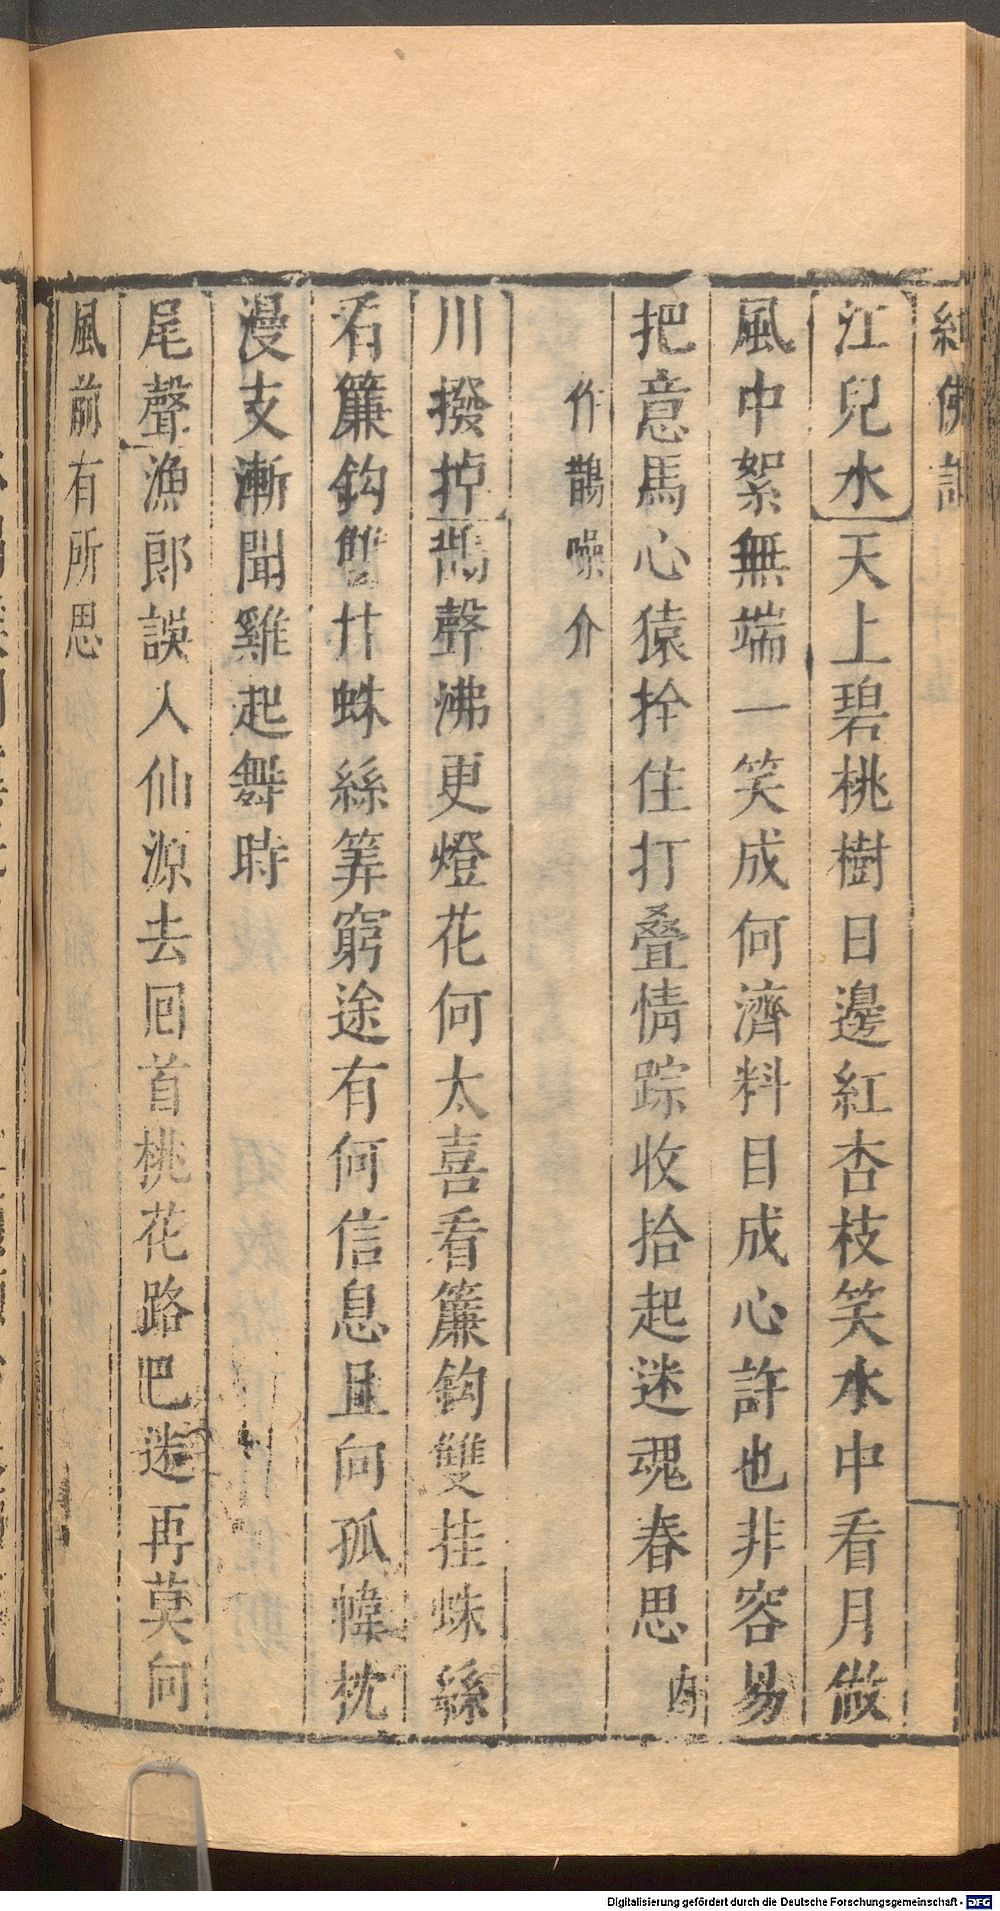 紅佛記
江兒水天上碧桃樹日邊紅杏枝笑水中看月做
風中絮無端一笑成何濟料目成心許也非容易
把意馬心猿拴住打叠情踪收拾起迷魂春思內
作鵲噪介
川撥掉鵲聲沸更燈花何太喜看簾鈎雙挂蛛絲
看簾鈎雙廾蛛絲筭窮途有何信息且向孤幃枕
漫支漸聞雞起舞時
尾聲漁郎誤入仙源去回首桃花路巴迷再莫向
風前有所思
Digitalisierung gefördert durch die Deutsche Forschungsgemeinschaft - DFG